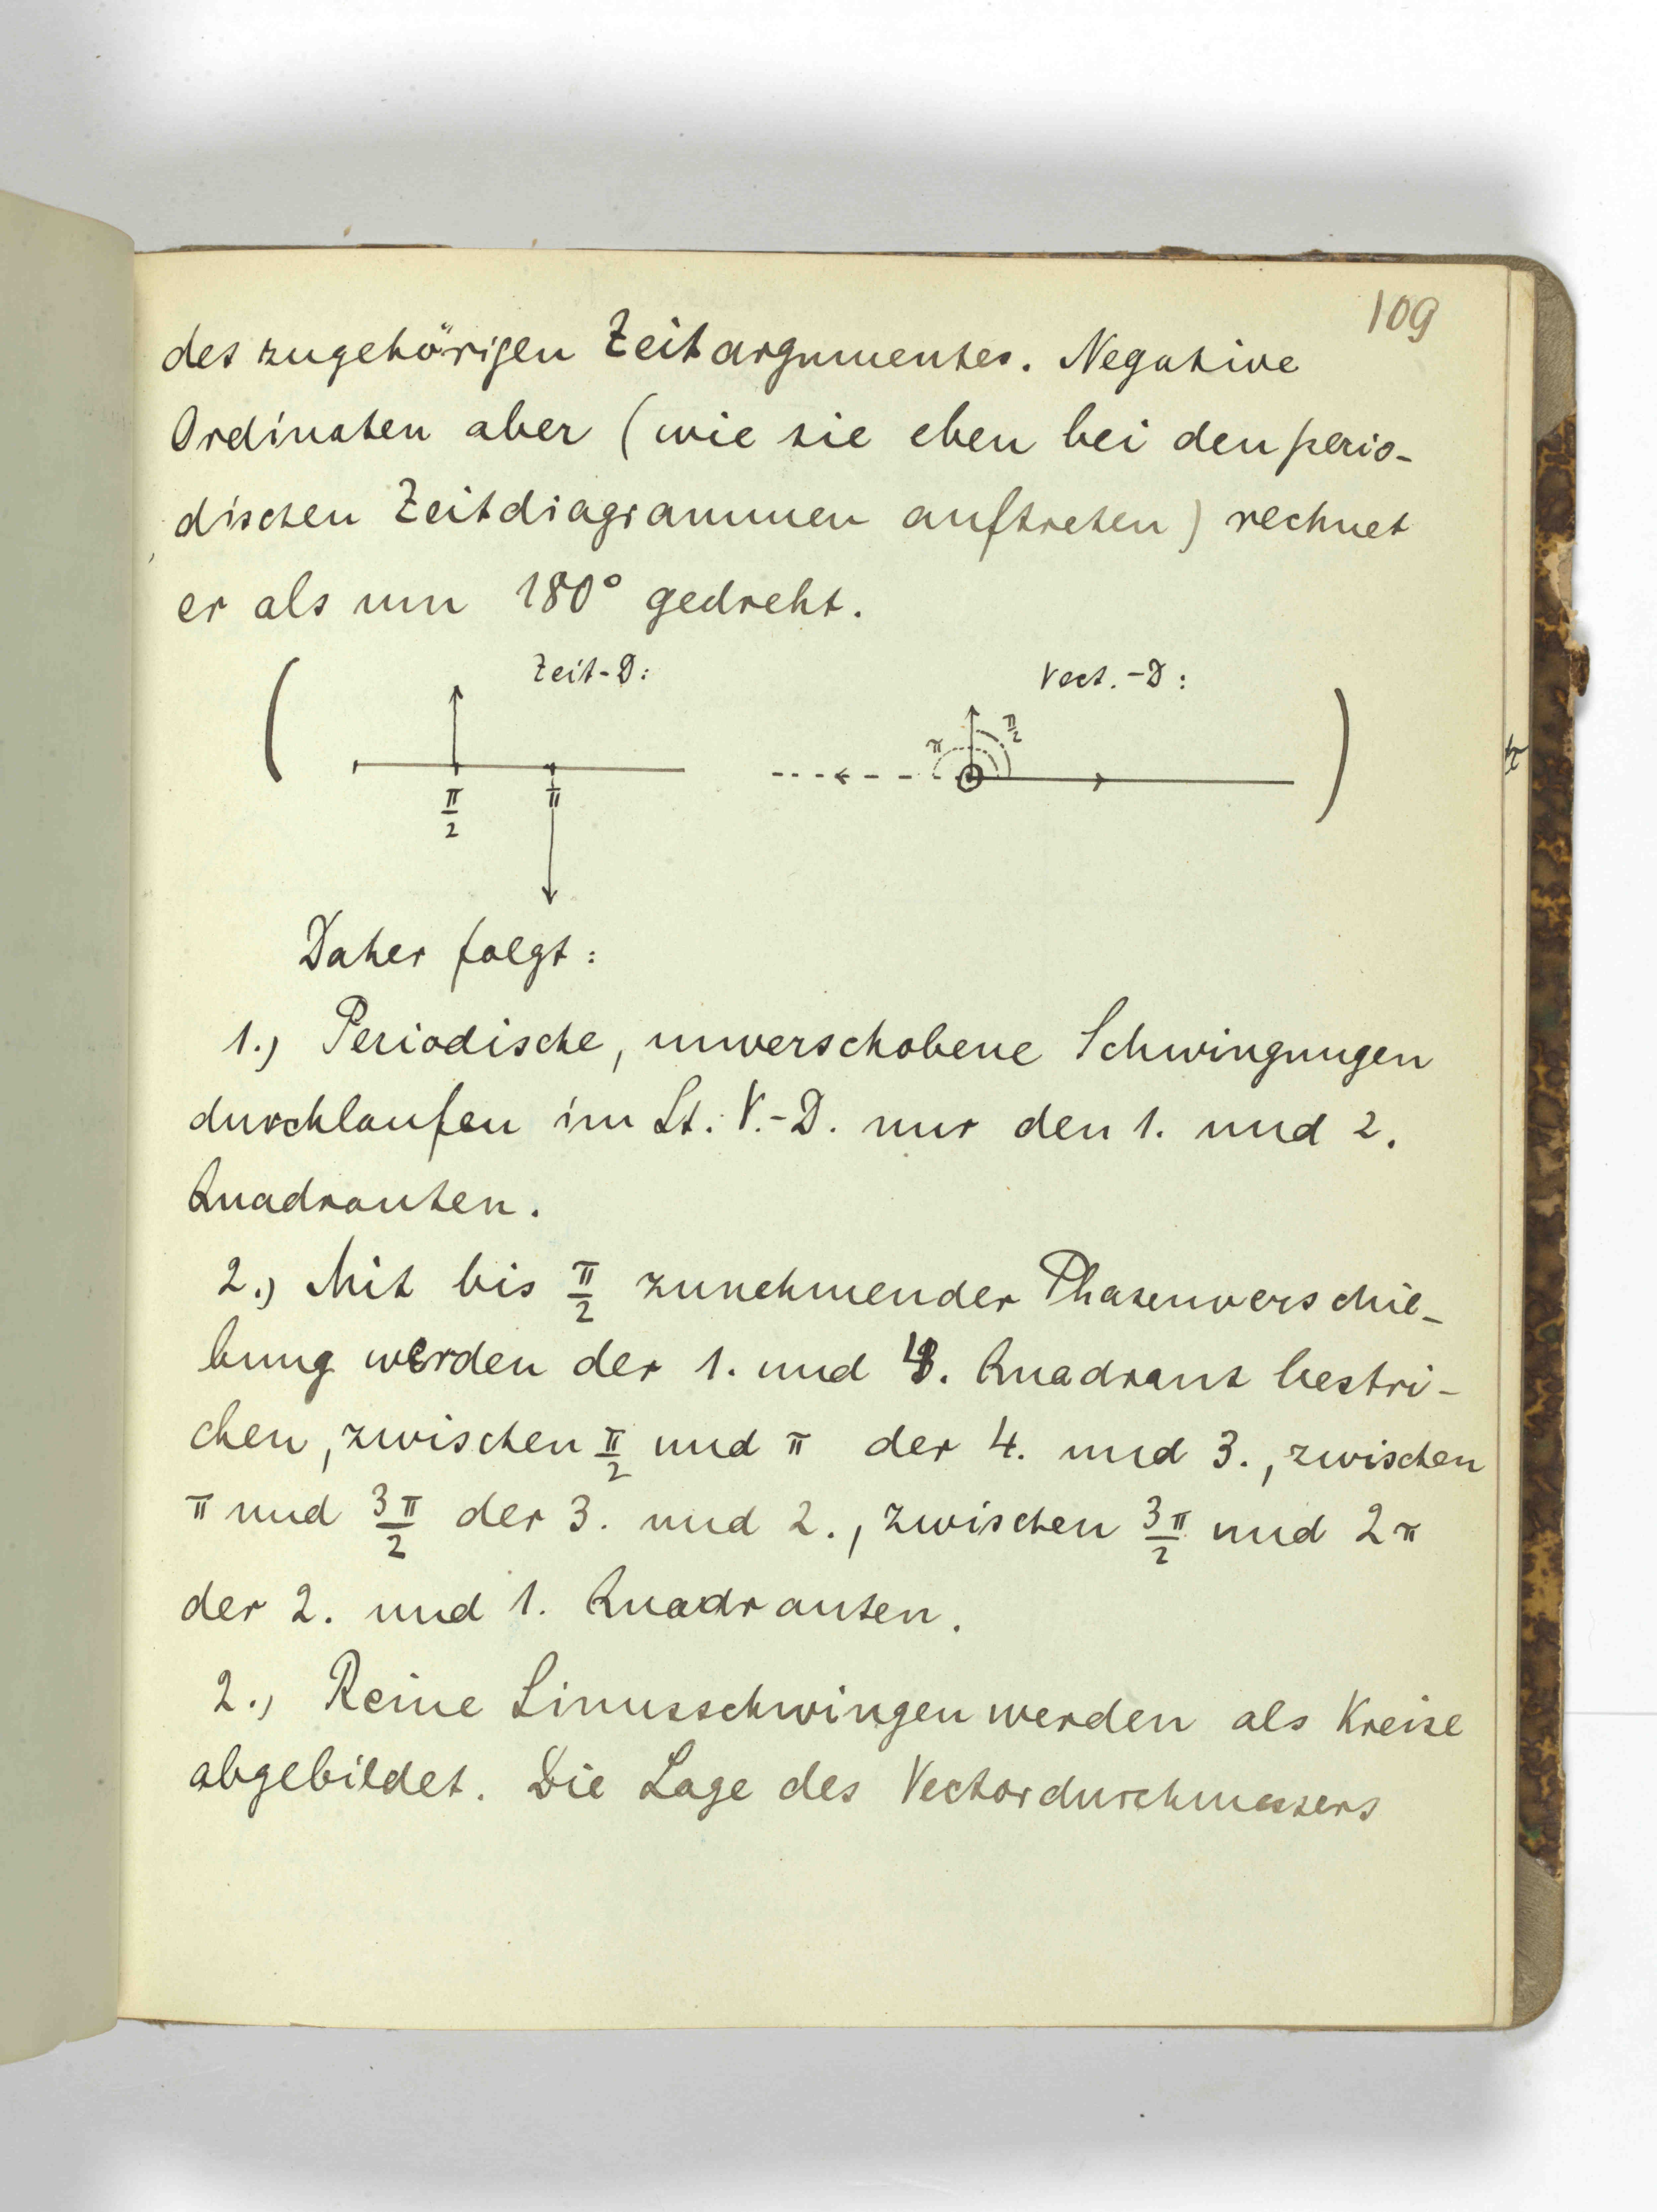 109
des zugehörigen Zeitargumentes. Negative
Ordinaten aber (wie sie eben bei den perio-
dischen Zeitdiagrammen auftreten) rechnet
er als um 180° gedreht.
( Zeit-D: Vect.-D: )
π/2 π π π/2
Daher folgt:
1.) Periodische, unverschobene Schwingungen
durchlaufen im St. V.-D. nur den 1. und 2.
Quadranten.
2.) Mit bis π/2 zunehmender Phasenverschie-
bung werden der 1. und 4. Quadrant bestri-
chen, zwischen π/2 und π der 4. und 3., zwischen
π und 3π/2 der 3. und 2., zwischen 3π/2 und 2π
der 2. und 1. Quadranten.
2.) Reine Sinusschwingen werden als Kreise
abgebildet. Die Lage des Vectordurchmessers